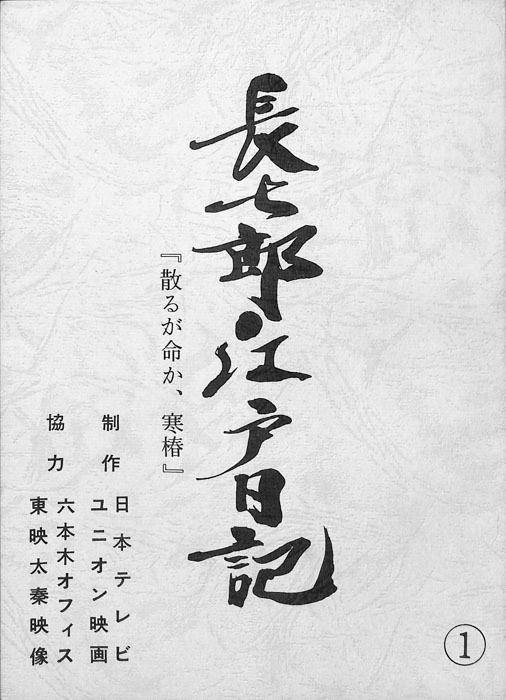 長七郎・江戸日記
『散るが命か、寒椿』
制作
日本テレビ
ユニオン映画
協力
六本木オフィス
東映太秦映像
1